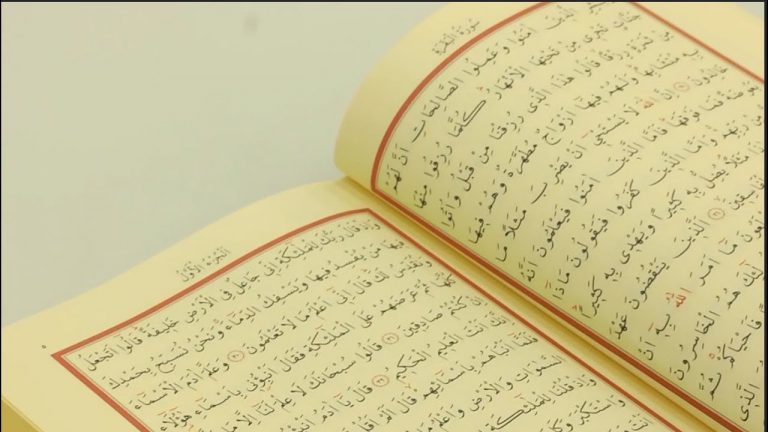 سُورَةُ الْبَقَرَةِ
الَّذِينَ اٰمَنُوا وَعَمِلُوا الصَّالِحَاتِ اَنَّ لَهُمْ
جَنَّاتٍ تَجْرِي مِنْ تَحْتِهَا الْاَنْهَارُ كُلَّمَا رُزِقُوا مِنْهَا
مِنْ ثَمَرَةٍ رِزْقًا قَالُوا هٰذَا الَّذِي رُزِقْنَا مِنْ قَبْلُ وَاُتُوا
بِهِ مُتَشَابِهًا وَلَهُمْ فِيهَا اَزْوَاجٌ مُطَهَّرَةٌ وَهُمْ فِيهَا
خَالِدُونَ ٢٥ اِنَّ اللّٰهَ لَا يَسْتَحْيِ اَنْ يَضْرِبَ مَثَلًا مَا
بَعُوضَةً فَمَا فَوْقَهَا فَاَمَّا الَّذِينَ اٰمَنُوا فَيَعْلَمُونَ اَنَّهُ
مِنْ رَبِّهِمْ وَاَمَّا الَّذِينَ كَفَرُوا فَيَقُولُونَ مَاذَا
مَثَلًا يُضِلُّ بِهِ كَثِيرًا وَيَهْدِي بِهِ كَثِيرًا
الْفَاسِقِينَ ٢٦ الَّذِينَ يَنْقُضُونَ عَهْدَ
مَا اَمَرَ اللّٰهُ بِهِ اَنْ
هُمُ الْخَاسِرُونَ
فَاَحْيَاكُمْ ثُمَّ
الَّذِي
اَلْجُزْءُ الْاَوَّلُ
وَاِذْ قَالَ رَبُّكَ لِلْمَلٰئِكَةِ اِنِّي جَاعِلٌ فِي الْاَرْضِ خَلِيفَةً قَالُوا اَتَجْعَلُ
فِيهَا مَنْ يُفْسِدُ فِيهَا وَيَسْفِكُ الدِّمَاءَ وَنَحْنُ نُسَبِّحُ بِحَمْدِكَ
وَنُقَدِّسُ لَكَ قَالَ اِنِّي اَعْلَمُ مَا لَا تَعْلَمُونَ ٣٠ وَعَلَّمَ اٰدَمَ الْاَسْمَاءَ
كُلَّهَا ثُمَّ عَرَضَهُمْ عَلَى الْمَلٰئِكَةِ فَقَالَ اَنْبِئُونِي بِاَسْمَاءِ هٰؤُلَاءِ
اِنْ كُنْتُمْ صَادِقِينَ ٣١ قَالُوا سُبْحَانَكَ لَا عِلْمَ لَنَا اِلَّا مَا
اِنَّكَ اَنْتَ الْعَلِيمُ الْحَكِيمُ ٣٢ قَالَ يَا اٰدَمُ
فَلَمَّا اَنْبَاَهُمْ بِاَسْمَائِهِمْ قَالَ اَلَمْ
السَّمٰوَاتِ وَالْاَرْضِ وَاَعْلَمُ
وَاِذْ قُلْنَا لِلْمَلٰئِكَةِ
وَاسْتَكْبَرَ وَكَانَ
٥